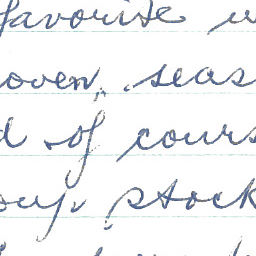 favorite
oven, seas
d of cours
oup stock